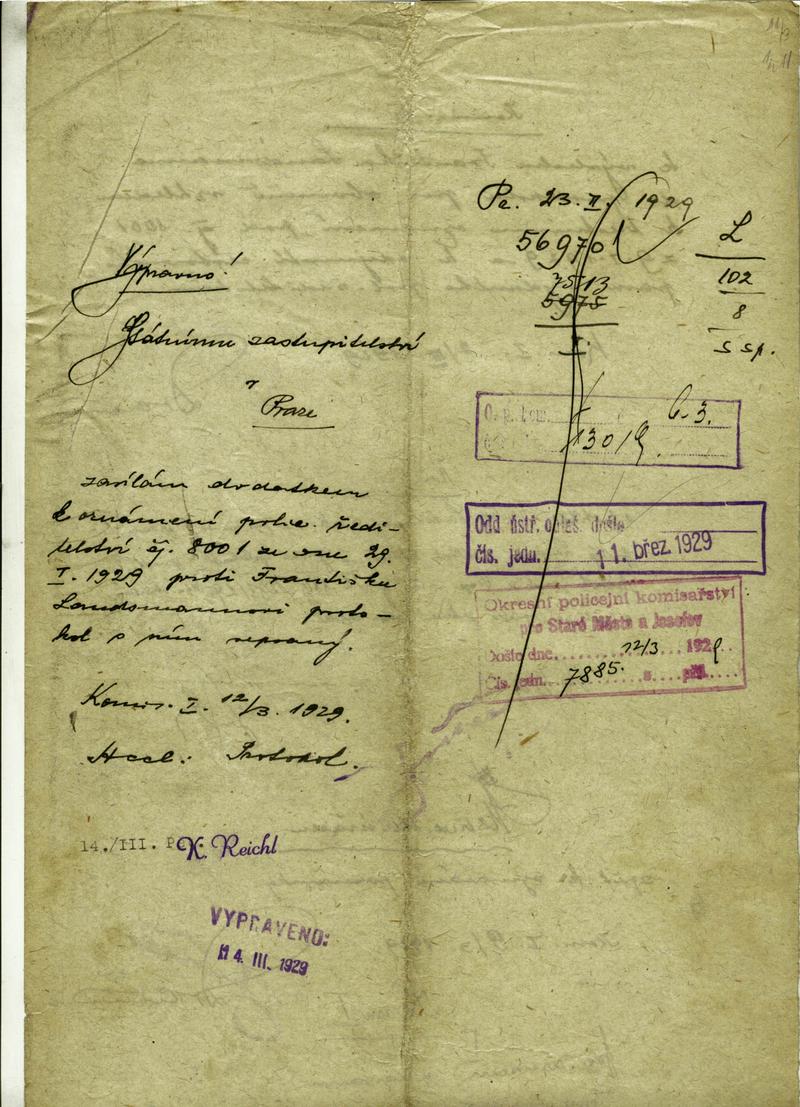 Výpravno!
Státnímu zastupitelství
v
Praze
zasílám dodatkem
k oznámení polic. ředi-
telství čj. 8001 ze dne 29.
I. 1929 proti Františku
Landsmannovi proto-
kol s ním sepsaný.
Komis. I. 12/3. 1929.
Accl: Protokol.
14./III. P
K. Reichl
VYPRAVENO:
14. III. 1929
Pr. 23. II. 1929
56970
7513
5975
I.
L
102
8
5 sp.
O. p. kom.
6.3.
13019.
Odd ústř. ohlaš. došlo
čís. jedn. 11. břez. 1929
Okresní policejní komisařství
pro Staré Město a Josefov
Došlo dne 12/3 1929
Čís. jedn. 7885. s příl.